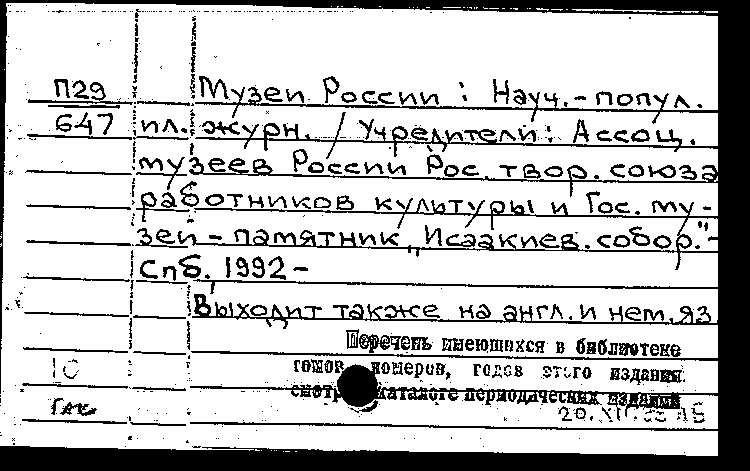 П29 Музеи России : Науч.-попул.
647 ил. журн. / Учредители: Ассоц.
музеев России Рос. твор. союза
работников культуры и Гос. му-
зей-памятник „Исаакиев. собор."-
Спб., 1992-
Выходит также на англ. и нем. яз
Перечень имеющихся в библиотеке
томов, номеров, годов этого издания
10
смотри каталоге периодических изданий